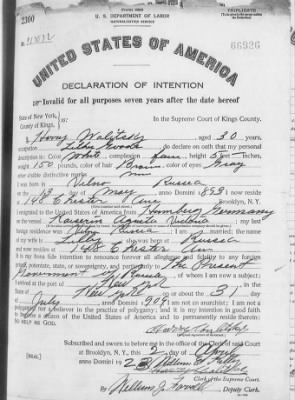 TRIPLICATE
2300
U. S. DEPARTMENT OF LABOR
NATURALIZATION SERVICE
66926
UNITED STATES OF AMERICA
DECLARATION OF INTENTION
Invalid for all purposes seven years after the date hereof
State of New York,
County of Kings,
In the Supreme Court of Kings County.
I, Harry Walitsky aged 30 years,
occupation do declare on oath that my personal
description is: Color White, complexion Fair, height 5 feet inches,
weight 150 pounds, color of hair Brown, color of eyes Gray
other visible distinctive marks
I was born in Vilna Russia
on the 13 day of May, anno Domini 1883; I now reside
at 148 Chester Ave Brooklyn, N. Y.
I emigrated to the United States of America from Hamburg Germany
on the vessel Kaiserin Auguste Victoria; my last
foreign residence was Russia; I am married; the name
of my wife is; she was born at Russia
and now resides at 148 Chester Ave
It is my bona fide intention to renounce forever all allegiance and fidelity to any foreign
prince, potentate, state, or sovereignty, and particularly to The Present
Government of Russia, of whom I am now a subject;
I arrived at the port of New York, in the
State of New York on or about the 31 day
of July, anno Domini 1909; I am not an anarchist; I am not a
polygamist nor a believer in the practice of polygamy; and it is my intention in good faith
to become a citizen of the United States of America and to permanently reside therein:
SO HELP ME GOD.
Subscribed and sworn to before me in the office of the Clerk of said Court
at Brooklyn, N. Y., this 2 day of April
anno Domini
[SEAL]
Clerk of the Supreme Court.
By William J. Deputy Clerk.